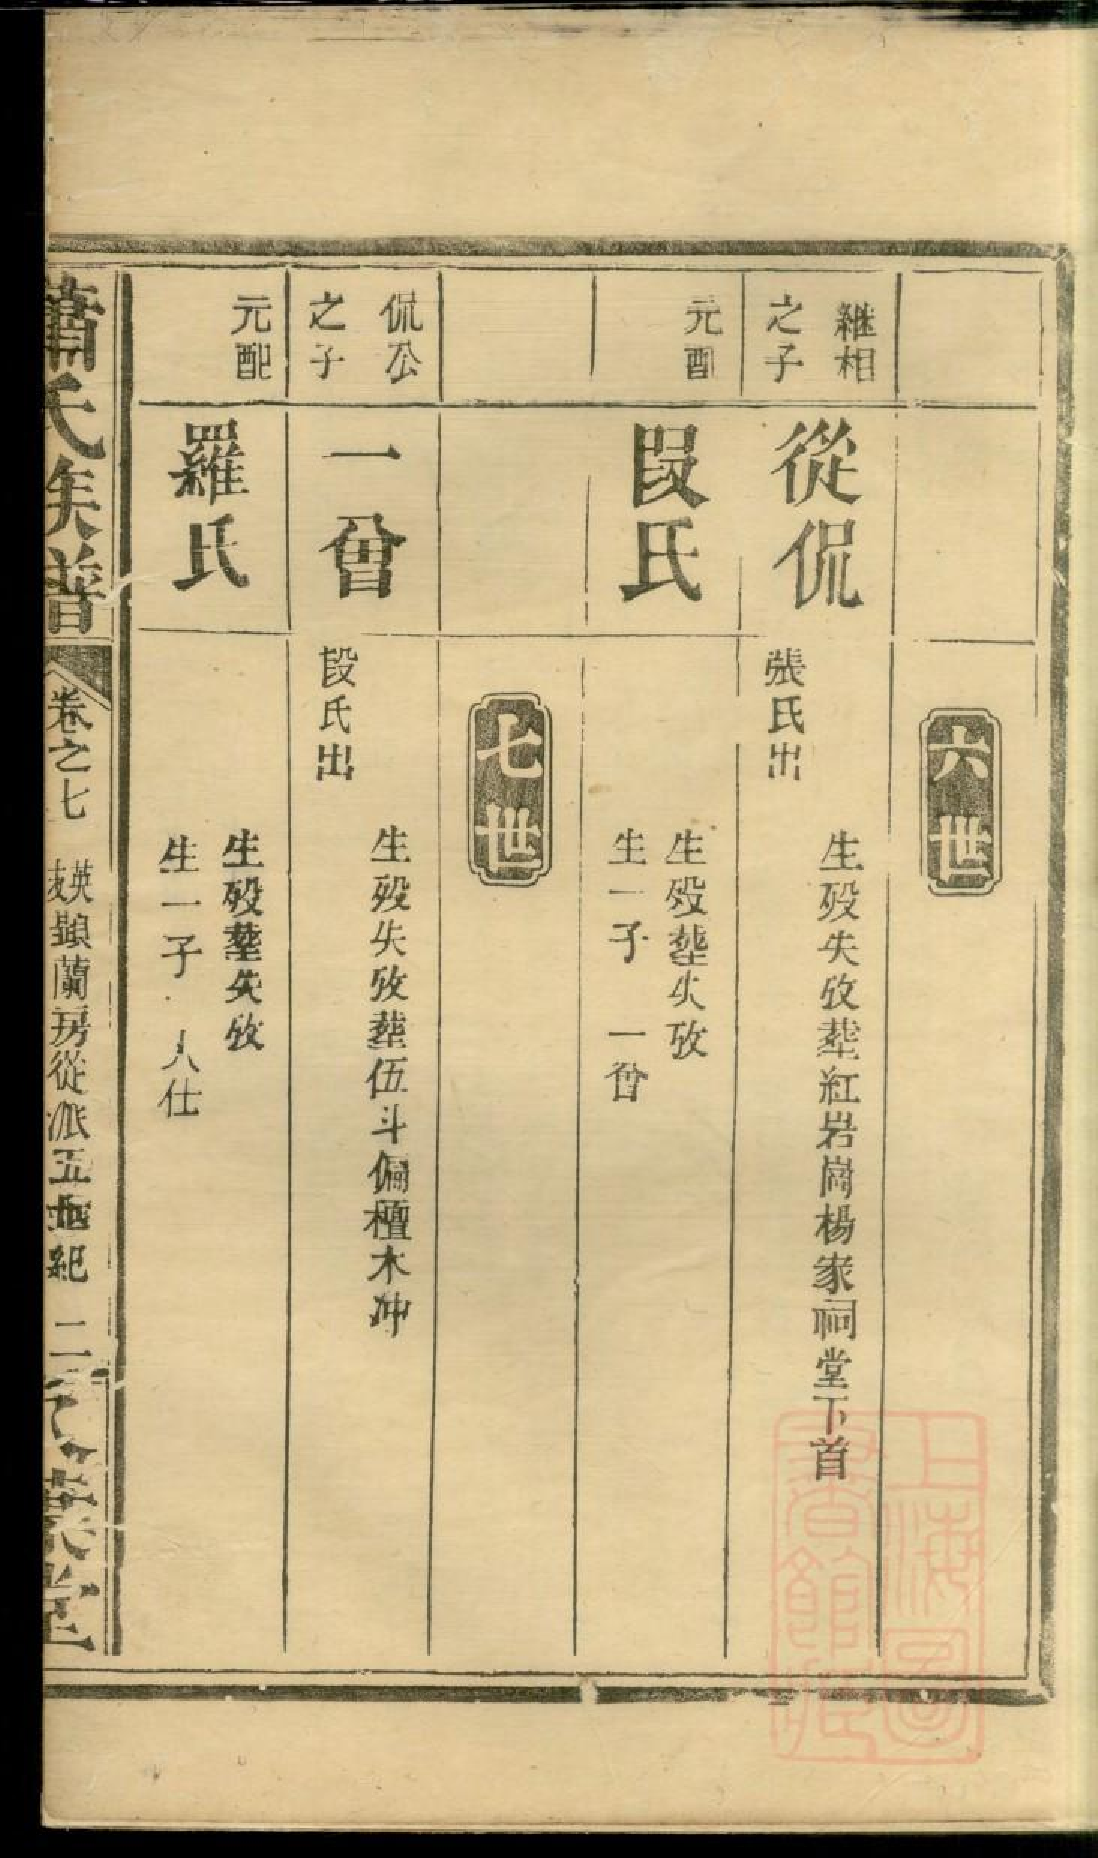 六世
繼相
之子
從侃
張氏出
生歿失攷葬紅岩崗楊家祠堂下首
元配
段氏
生歿葬失攷
生一子 一曾
七世
侃公
之子
一曾
段氏出
生歿失攷葬伍斗偏檀木冲
元配
羅氏
生歿葬失攷
生一子 人仕
蕭氏族譜
卷之七
英
友
顯蘭房從派五世紀
二
上海圖
書館藏